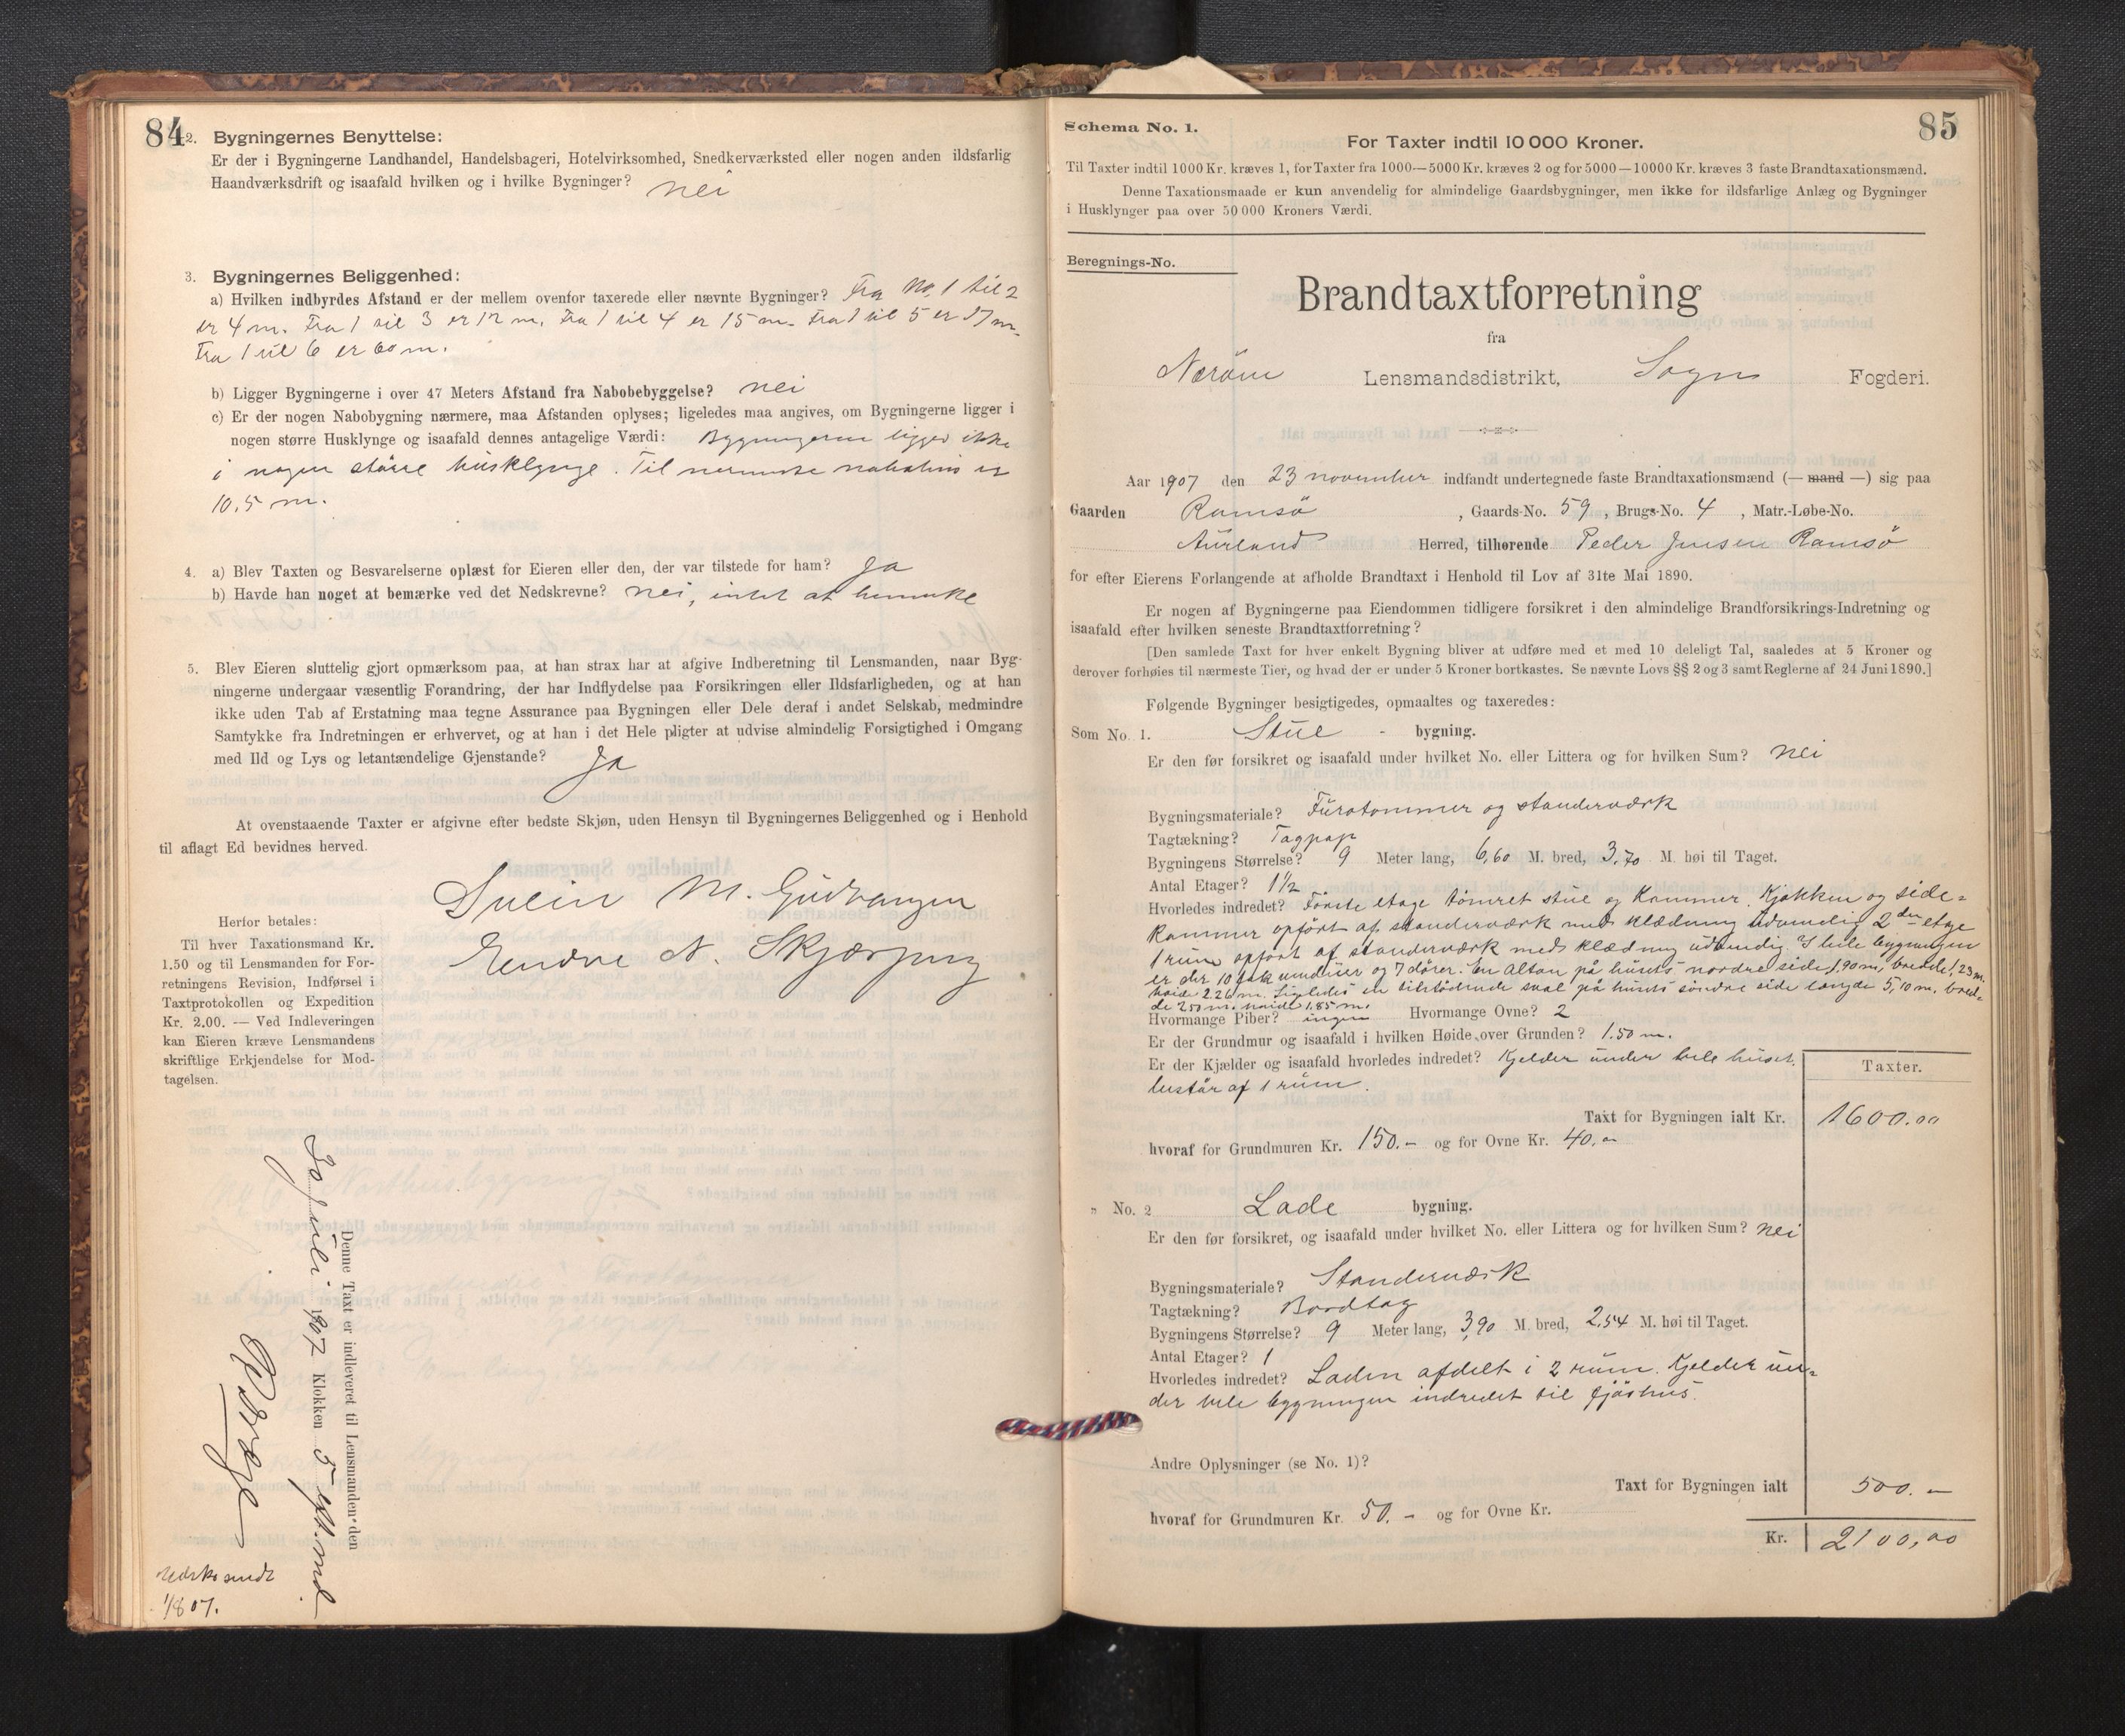 84
2. Bygningernes Benyttelse:
Er der i Bygningerne Landhandel, Handelsbageri, Hotelvirksomhed, Snedkerværksted eller nogen anden ildsfarlig
Haandværksdrift og isaafald hvilken og i hvilke Bygninger? nei
3. Bygningernes Beliggenhed:
a) Hvilken indbyrdes Afstand er der mellem ovenfor taxerede eller nævnte Bygninger? Fra No. 1 til 2
er 4 m. Fra 1 til 3 er 12 m. Fra 1 til 4 er 15 m. Fra 1 til 5 er 17 m.
Fra 1 til 6 er 60 m.
b) Ligger Bygningerne i over 47 Meters Afstand fra Nabobebyggelse? nei
c) Er der nogen Nabobygning nærmere, maa Afstanden oplyses; ligeledes maa angives, om Bygningerne ligger i
nogen større Husklynge og isaafald dennes antagelige Værdi: Bygningerne ligger ikke
i nogen större húsklynge. Til nermeste nabohús er
10,5 m.
4. a) Blev Taxten og Besvarelserne oplæst for Eieren eller den, der var tilstede for ham? Ja
b) Havde han noget at bemærke ved det Nedskrevne? nei, intet at bemerke
5. Blev Eieren sluttelig gjort opmærksom paa, at han strax har at afgive Indberetning til Lensmanden, naar Byg-
ningerne undergaar væsentlig Forandring, der har Indflydelse paa Forsikringen eller Ildsfarligheden, og at han
ikke uden Tab af Erstatning maa tegne Assurance paa Bygningen eller Dele deraf i andet Selskab, medmindre
Samtykke fra Indretningen er erhvervet, og at han i det Hele pligter at udvise almindelig Forsigtighed i Omgang
med Ild og Lys og letantændelige Gjenstande? Ja
At ovenstaaende Taxter er afgivne efter bedste Skjøn, uden Hensyn til Bygningernes Beliggenhed og i Henhold
til aflagt Ed bevidnes herved.
M. Gudvangen
Endre N. Skjerping
Herfor betales:
Til hver Taxationsmand Kr.
1.50 og til Lensmanden for For-
retningens Revision, Indførsel i
Taxtprotokollen og Expedition
Kr. 2.00. — Ved Indleveringen
kan Eieren kræve Lensmandens
skriftlige Erkjendelse for Mod-
tagelsen.
Denne Taxt er indleveret til Lensmanden den
juli 1907 Klokken 5 eft.md.
1/8 07.
85
Schema No. 1.
For Taxter indtil 10 000 Kroner.
Til Taxter indtil 1000 Kr. kræves 1, for Taxter fra 1000—5000 Kr. kræves 2 og for 5000—10000 Kr. kræves 3 faste Brandtaxationsmænd.
Denne Taxationsmaade er kun anvendelig for almindelige Gaardsbygninger, men ikke for ildsfarlige Anlæg og Bygninger
i Husklynger paa over 50 000 Kroners Værdi.
Beregnings-No.
Brandtaxtforretning
fra
Nærøen Lensmandsdistrikt, Sogn Fogderi.
Aar 1907 den 23 november indfandt undertegnede faste Brandtaxationsmænd (— mand —) sig paa
Gaarden Ramsö, Gaards-No. 59, Brugs-No. 4, Matr.-Løbe-No.
Aurland Herred, tilhørende Peder Jensen Ramsö
for efter Eierens Forlangende at afholde Brandtaxt i Henhold til Lov af 31te Mai 1890.
Er nogen af Bygningerne paa Eiendommen tidligere forsikret i den almindelige Brandforsikrings-Indretning og
isaafald efter hvilken seneste Brandtaxtforretning?
[Den samlede Taxt for hver enkelt Bygning bliver at udføre med et med 10 deleligt Tal, saaledes at 5 Kroner og
derover forhøies til nærmeste Tier, og hvad der er under 5 Kroner bortkastes. Se nævnte Lovs §§ 2 og 3 samt Reglerne af 24 Juni 1890.]
Følgende Bygninger besigtigedes, opmaaltes og taxeredes:
Som No. 1. Stue - bygning.
Er den før forsikret og isaafald under hvilket No. eller Littera og for hvilken Sum? nei
Bygningsmateriale? Fúrotømmer og standerværk
Tagtækning? Tagpap
Bygningens Størrelse? 9 Meter lang, 6,60 M. bred, 3,70 M. høi til Taget.
Antal Etager? 1½
Hvorledes indredet? Förste etage tömret stue og Kammer. Kjøkken og side-
kammer opfört af standerværk med klædning udvendig 2den etage
1 rúm opfört af standerværk med klædning udvendig. I hele bygningen
er der 10 fak vindúer og 7 dörer. En Altan på húsets nordre side 1,90 m, bredde 1,23 m.
høide 2.26 m. Ligeledes en tilstödende sval på húsets söndre side længde 5,10 m. bred-
de 2.50 m. høide 1.85 m.
Hvormange Piber? ingen Hvormange Ovne? 2
Er der Grundmur og isaafald i hvilken Høide over Grunden? 1.50 m.
Er der Kjælder og isaafald hvorledes indredet? Kjelder únder hele húset.
består af 1 rúm.
Taxter.
Taxt for Bygningen ialt Kr. 1600.00
hvoraf for Grundmuren Kr. 150.- og for Ovne Kr. 40.-
" No. 2 Lade bygning.
Er den før forsikret, og isaafald under hvilket No. eller Littera og for hvilken Sum? nei
Bygningsmateriale? Standerværk
Tagtækning? Bordtag
Bygningens Størrelse? 9 Meter lang, 3,90 M. bred, 2,54 M. høi til Taget.
Antal Etager? 1
Hvorledes indredet? Laden afdelt i 2 rúm. Kjelder ún-
der hele bygningen indredet til fjöshús.
Andre Oplysninger (se No. 1)?
Taxt for Bygningen ialt 500.-
hvoraf for Grundmuren Kr. 50.- og for Ovne Kr.
Kr. 2100,00